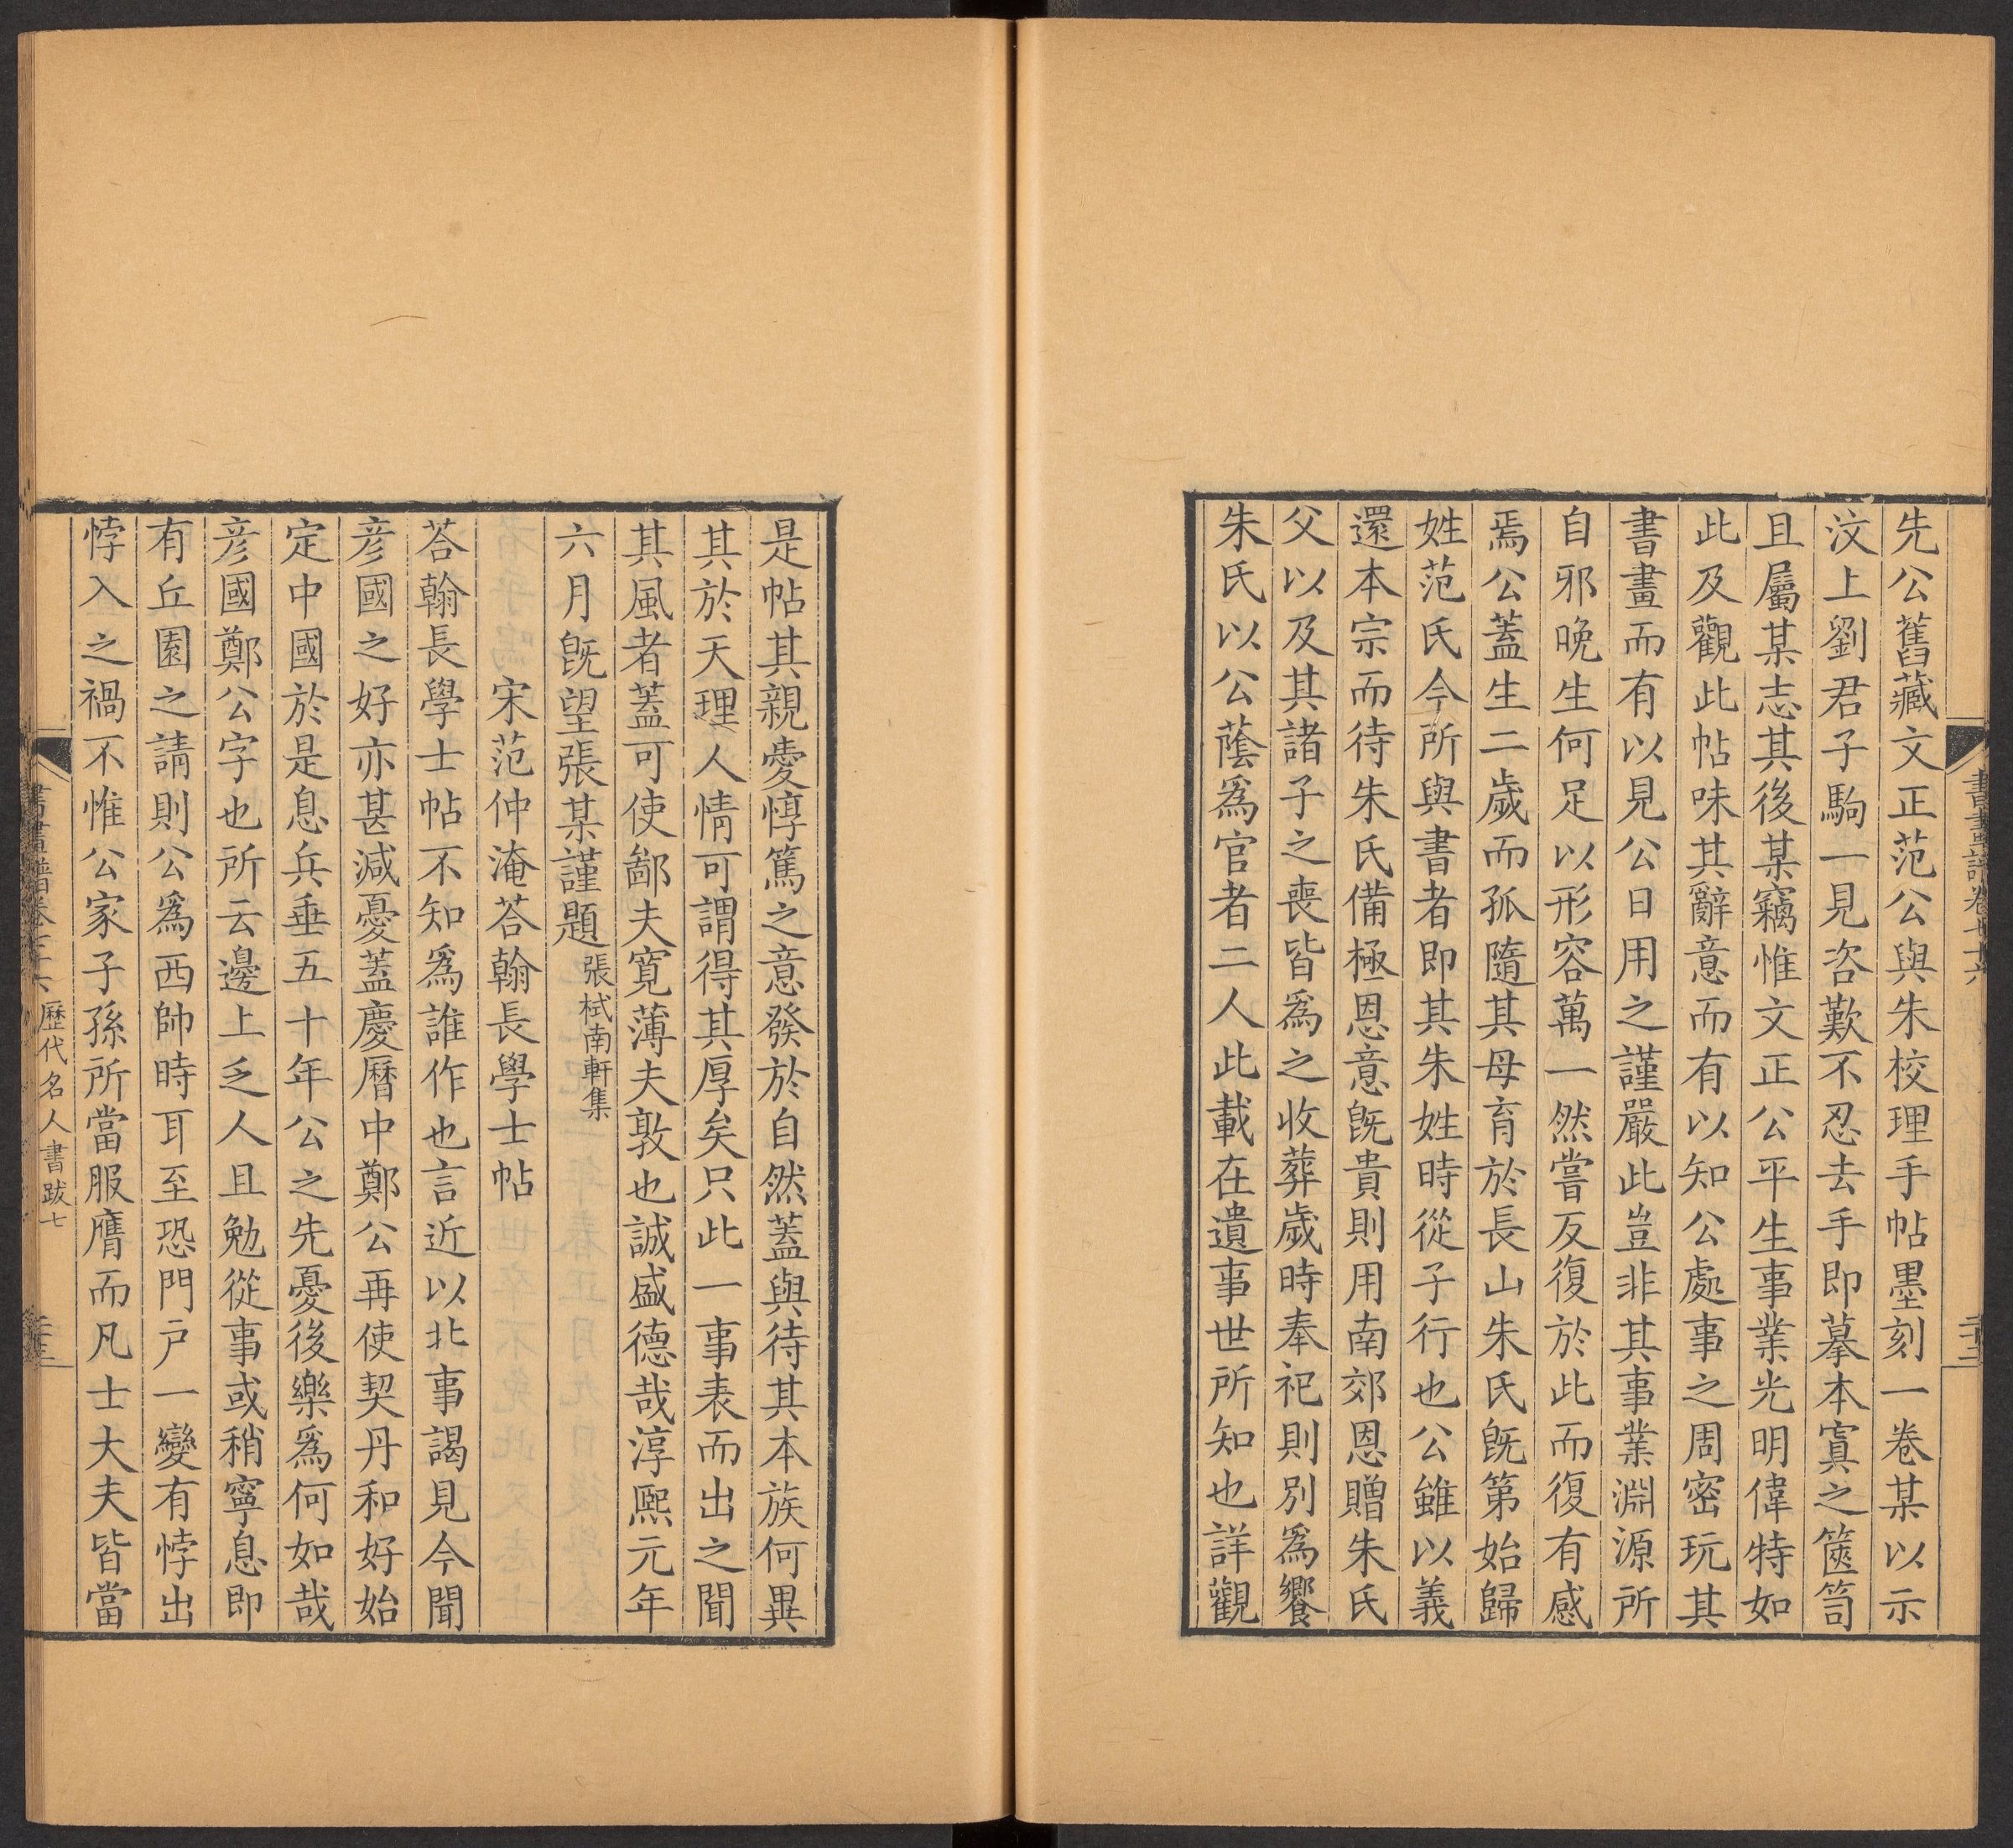 先公舊藏文正范公與朱校理手帖墨刻一卷某以示
汶上劉君子駒一見咨歎不忍去手即摹本寘之篋笥
且屬某志其後某竊惟文正公平生事業光明偉特如
此及觀此帖味其辭意而有以知公處事之周密玩其
書畫而有以見公日用之謹嚴此豈非其事業淵源所
自邪晚生何足以形容萬一然嘗反復於此而復有感
焉公蓋生二歲而孤隨其母育於長山朱氏旣第始歸
姓范氏今所與書者即其朱姓時從子行也公雖以義
還本宗而待朱氏備極恩意旣貴則用南郊恩贈朱氏
父以及其諸子之喪皆爲之收葬歲時奉祀則別爲饗
朱氏以公蔭爲官者二人此載在遺事世所知也詳觀
是帖其親愛惇篤之意發於自然蓋與待其本族何異
其於天理人情可謂得其厚矣只此一事表而出之聞
其風者蓋可使鄙夫寬薄夫敦也誠盛德哉淳熙元年
六月旣望張某謹題張栻南軒集
宋范仲淹荅翰長學士帖
荅翰長學士帖不知爲誰作也言近以北事謁見今聞
彦國之好亦甚減憂蓋慶曆中鄭公再使契丹和好始
定中國於是息兵垂五十年公之先憂後樂爲何如哉
彦國鄭公字也所云邊上乏人且勉從事或稍寧息即
有丘園之請則公爲西帥時耳至恐門戶一變有悖出
悖入之禍不惟公家子孫所當服膺而凡士大夫皆當
歷代名人書跋七